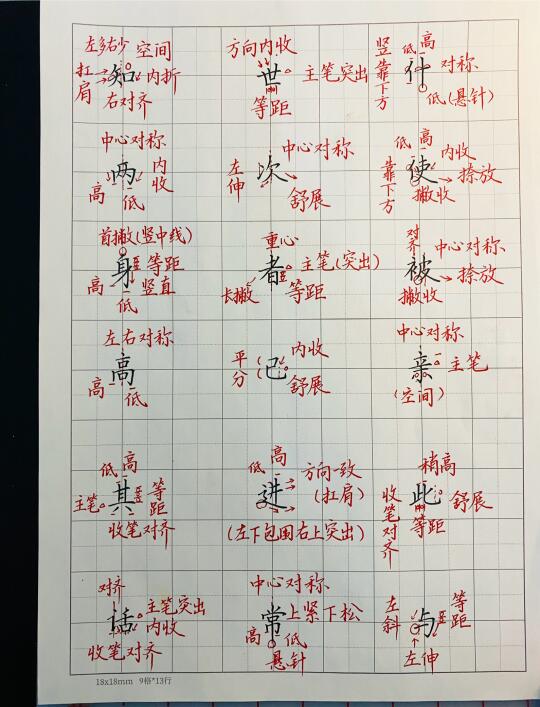 左多右少 空间
扛肩 知 内折
右对齐
方向内收
世 主笔突出
等距
竖靠下方 低 高
什 对称
低(悬针)
中心对称
两 内收
高 低
中心对称
左伸 次
舒展
低 高 内收
靠下方 使 捺放
撇收
首撇(竖中线)
身 等距
高 竖直
低
重心
者 主笔(突出)
长撇 等距
对齐 中心对称
被 捺放
撇收
左右对称
高
高 低
平分 己 内收
舒展
中心对称
亲 主笔
(空间)
低 高
主笔 其 等距
收笔对齐
低 高 方向一致
进 (扛肩)
(左下包围右上突出)
稍高
收笔对齐 此 舒展
等距
对齐
话 主笔突出
内收
收笔对齐
中心对称
常 上紧下松
高 低
悬针
左斜 与 等距
左伸
18x18mm 9格*13行